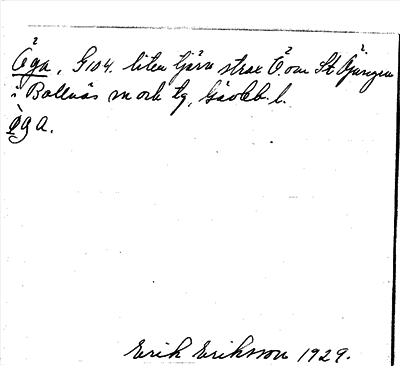 Öga, G104. liten tjärn strax Ö. om St. Öjungen
i Bollnäs sn och tg, Gävleb. l.
ò̢ga.
Erik Eriksson 1929.